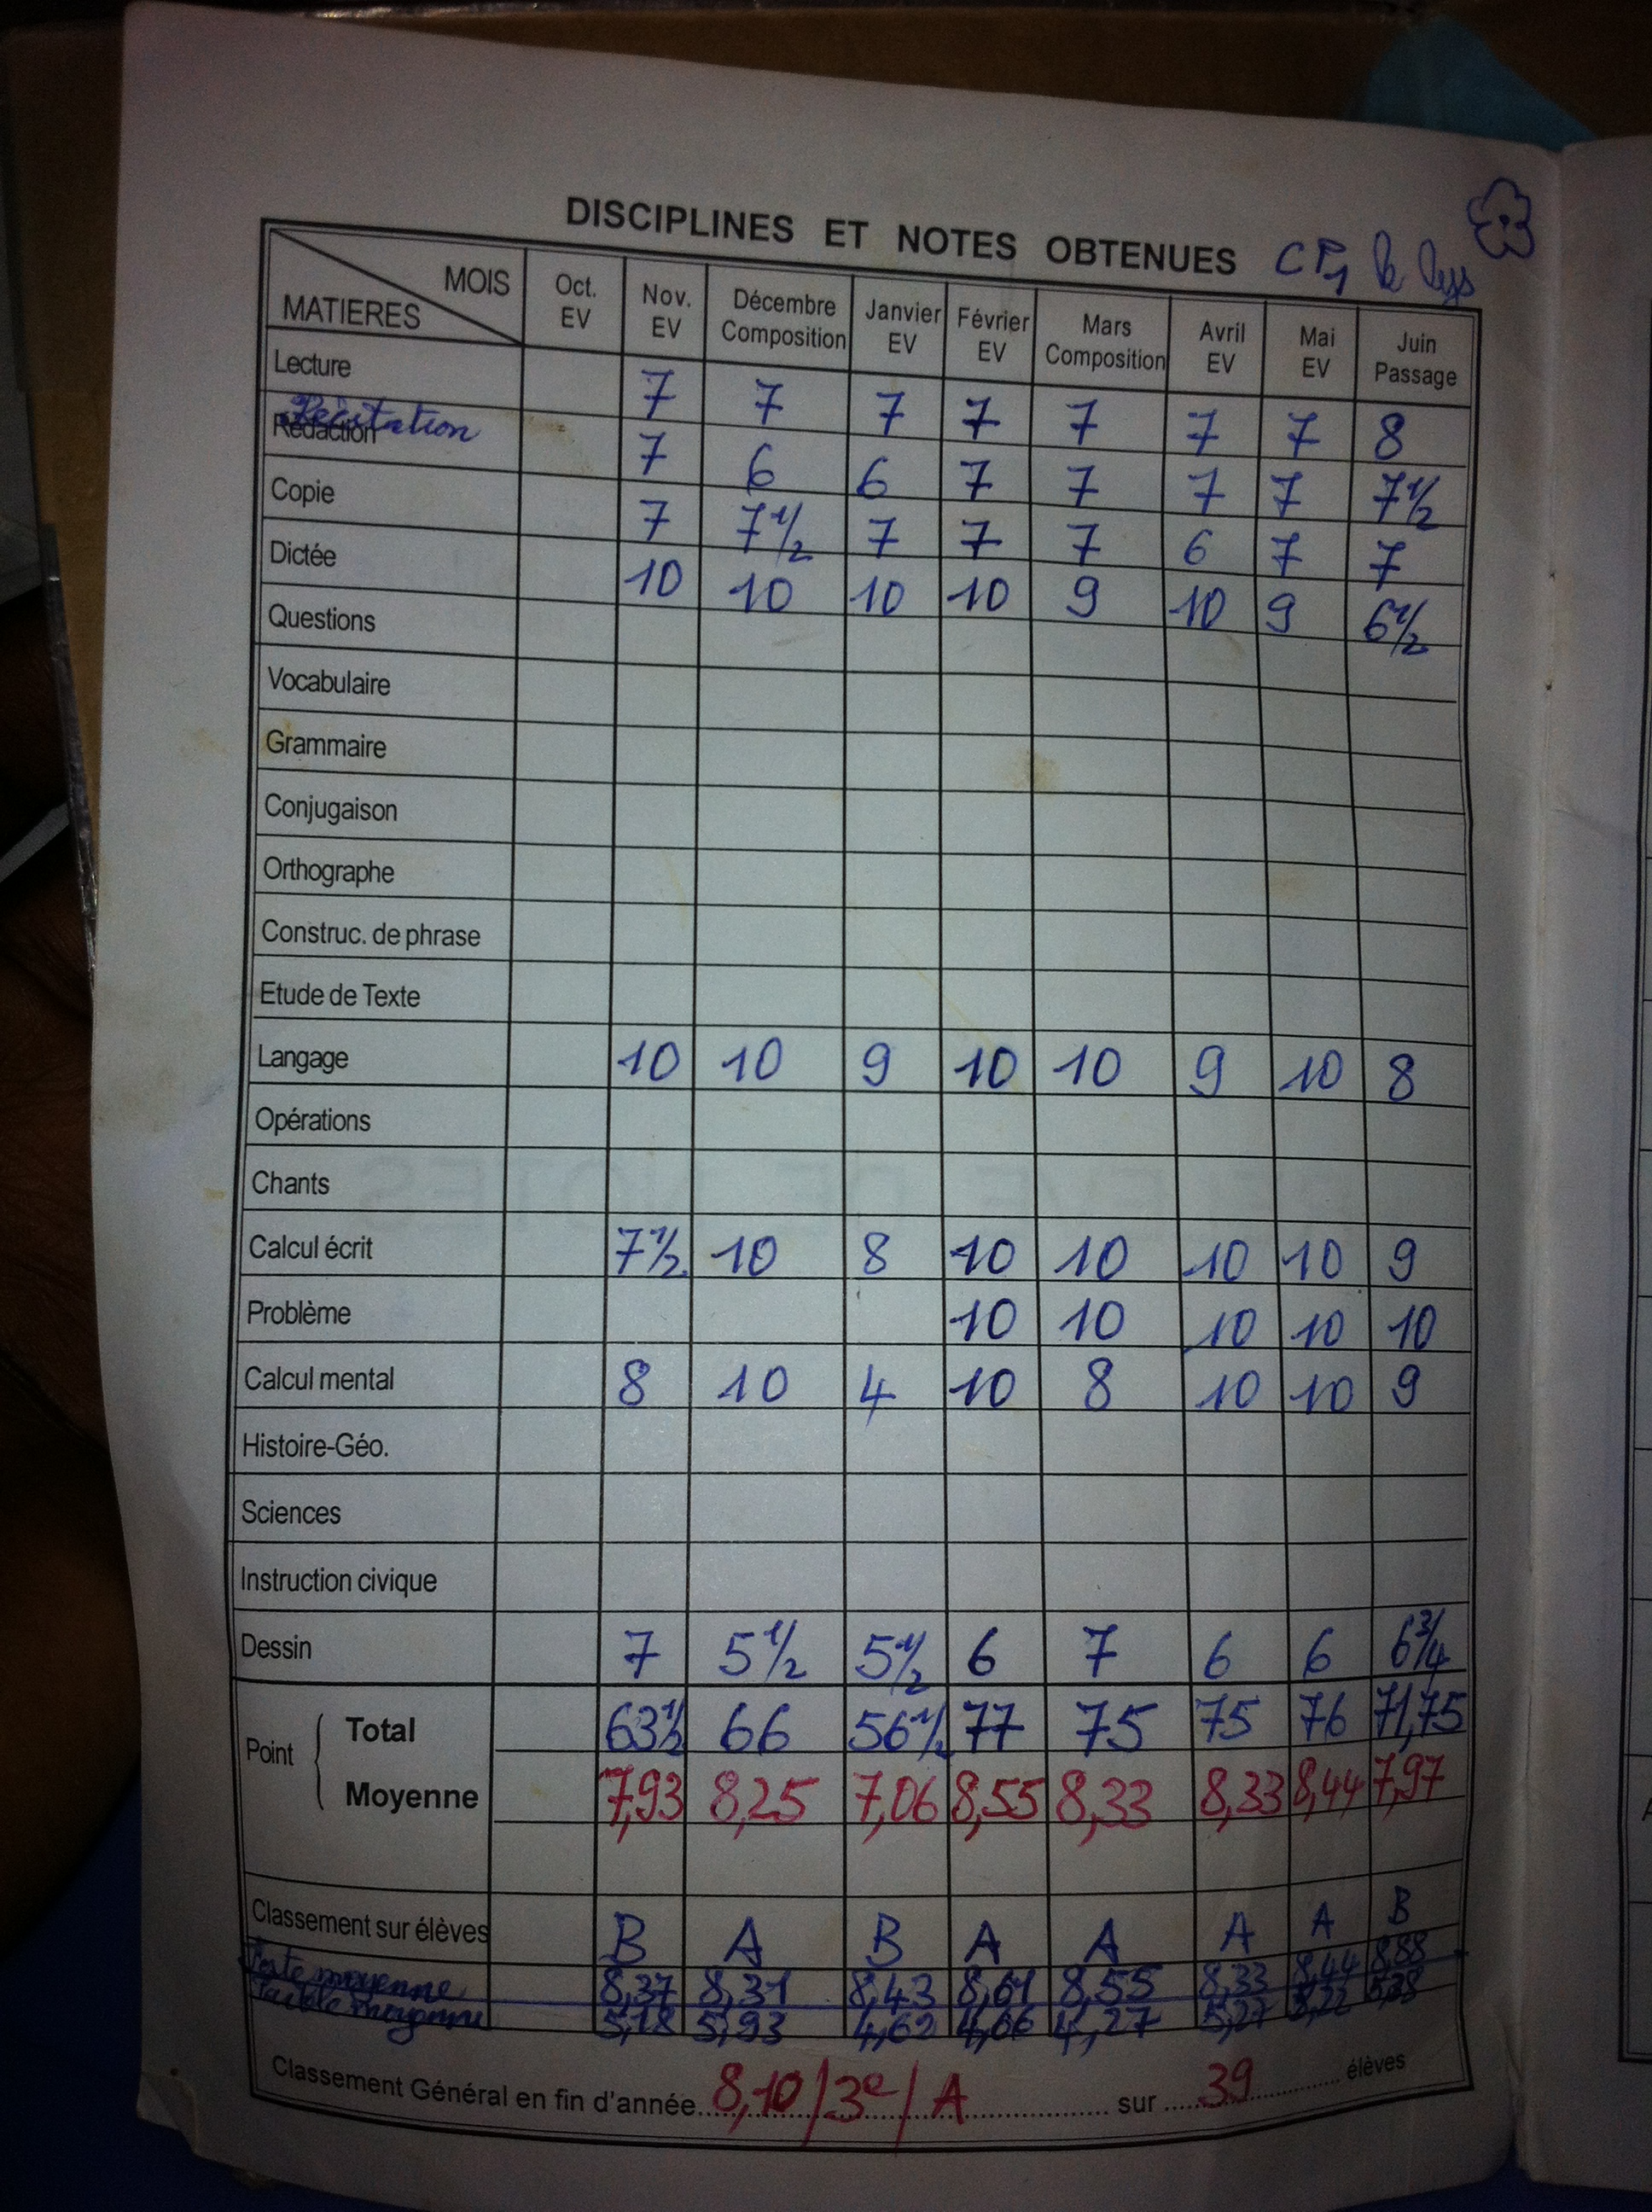 DISCIPLINES ET NOTES OBTENUES CP1 le lys
MATIERES MOIS Oct. EV Nov. EV Décembre Composition Janvier EV Février EV Mars Composition Avril EV Mai EV Juin Passage
Lecture 7 7 7 7 7 7 7 8
Rédaction Récitation 7 6 6 7 7 7 7 7 1/2
Copie 7 7 1/2 7 7 7 6 7 7
Dictée 10 10 10 10 9 10 9 6 1/2
Questions
Vocabulaire
Grammaire
Conjugaison
Orthographe
Construc. de phrase
Etude de Texte
Langage 10 10 9 10 10 9 10 8
Opérations
Chants
Calcul écrit 7 1/2 10 8 10 10 10 10 9
Problème 10 10 10 10 10
Calcul mental 8 10 4 10 8 10 10 9
Histoire-Géo.
Sciences
Instruction civique
Dessin 7 5 1/2 5 1/2 6 7 6 6 6 3/4
Point Total 63 1/2 66 56 1/2 77 75 75 76 71,75
Moyenne 7,93 8,25 7,06 8,55 8,33 8,33 8,44 7,97
Classement sur élèves B A B A A A A B
Forte moyenne 8,37 8,31 8,43 8,61 8,55 8,33 8,44 8,88
Faible moyenne 5,18 5,93 4,62 4,66 4,27 5,27
Classement Général en fin d'année 8,10/3e/A sur 39 élèves